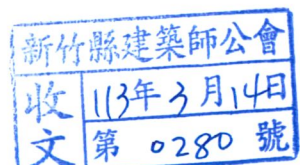 新竹縣建築師公會
收文
113年3月14日
第 0280 號